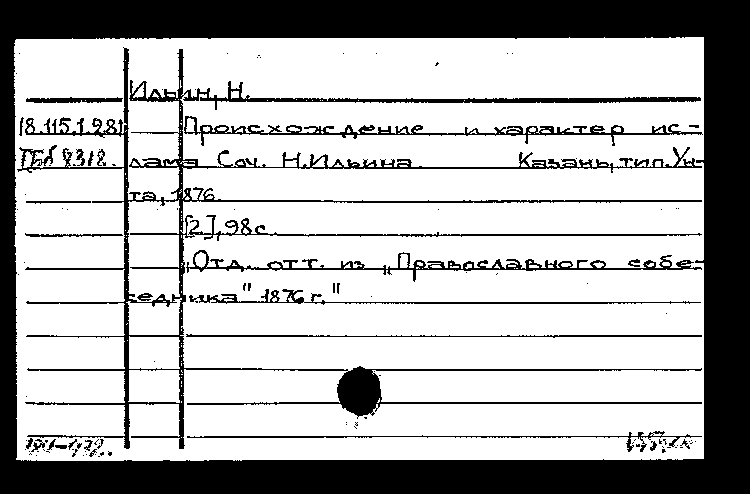 Ильин, Н.
18.115.1.281 Происхождение и характер ис-
лама Соч. Н.Ильина. Казань, тип. Ун-
та, 1876.
[2], 98с.
„Отд. отт. из „Православного собе-
седника" 1876 г."